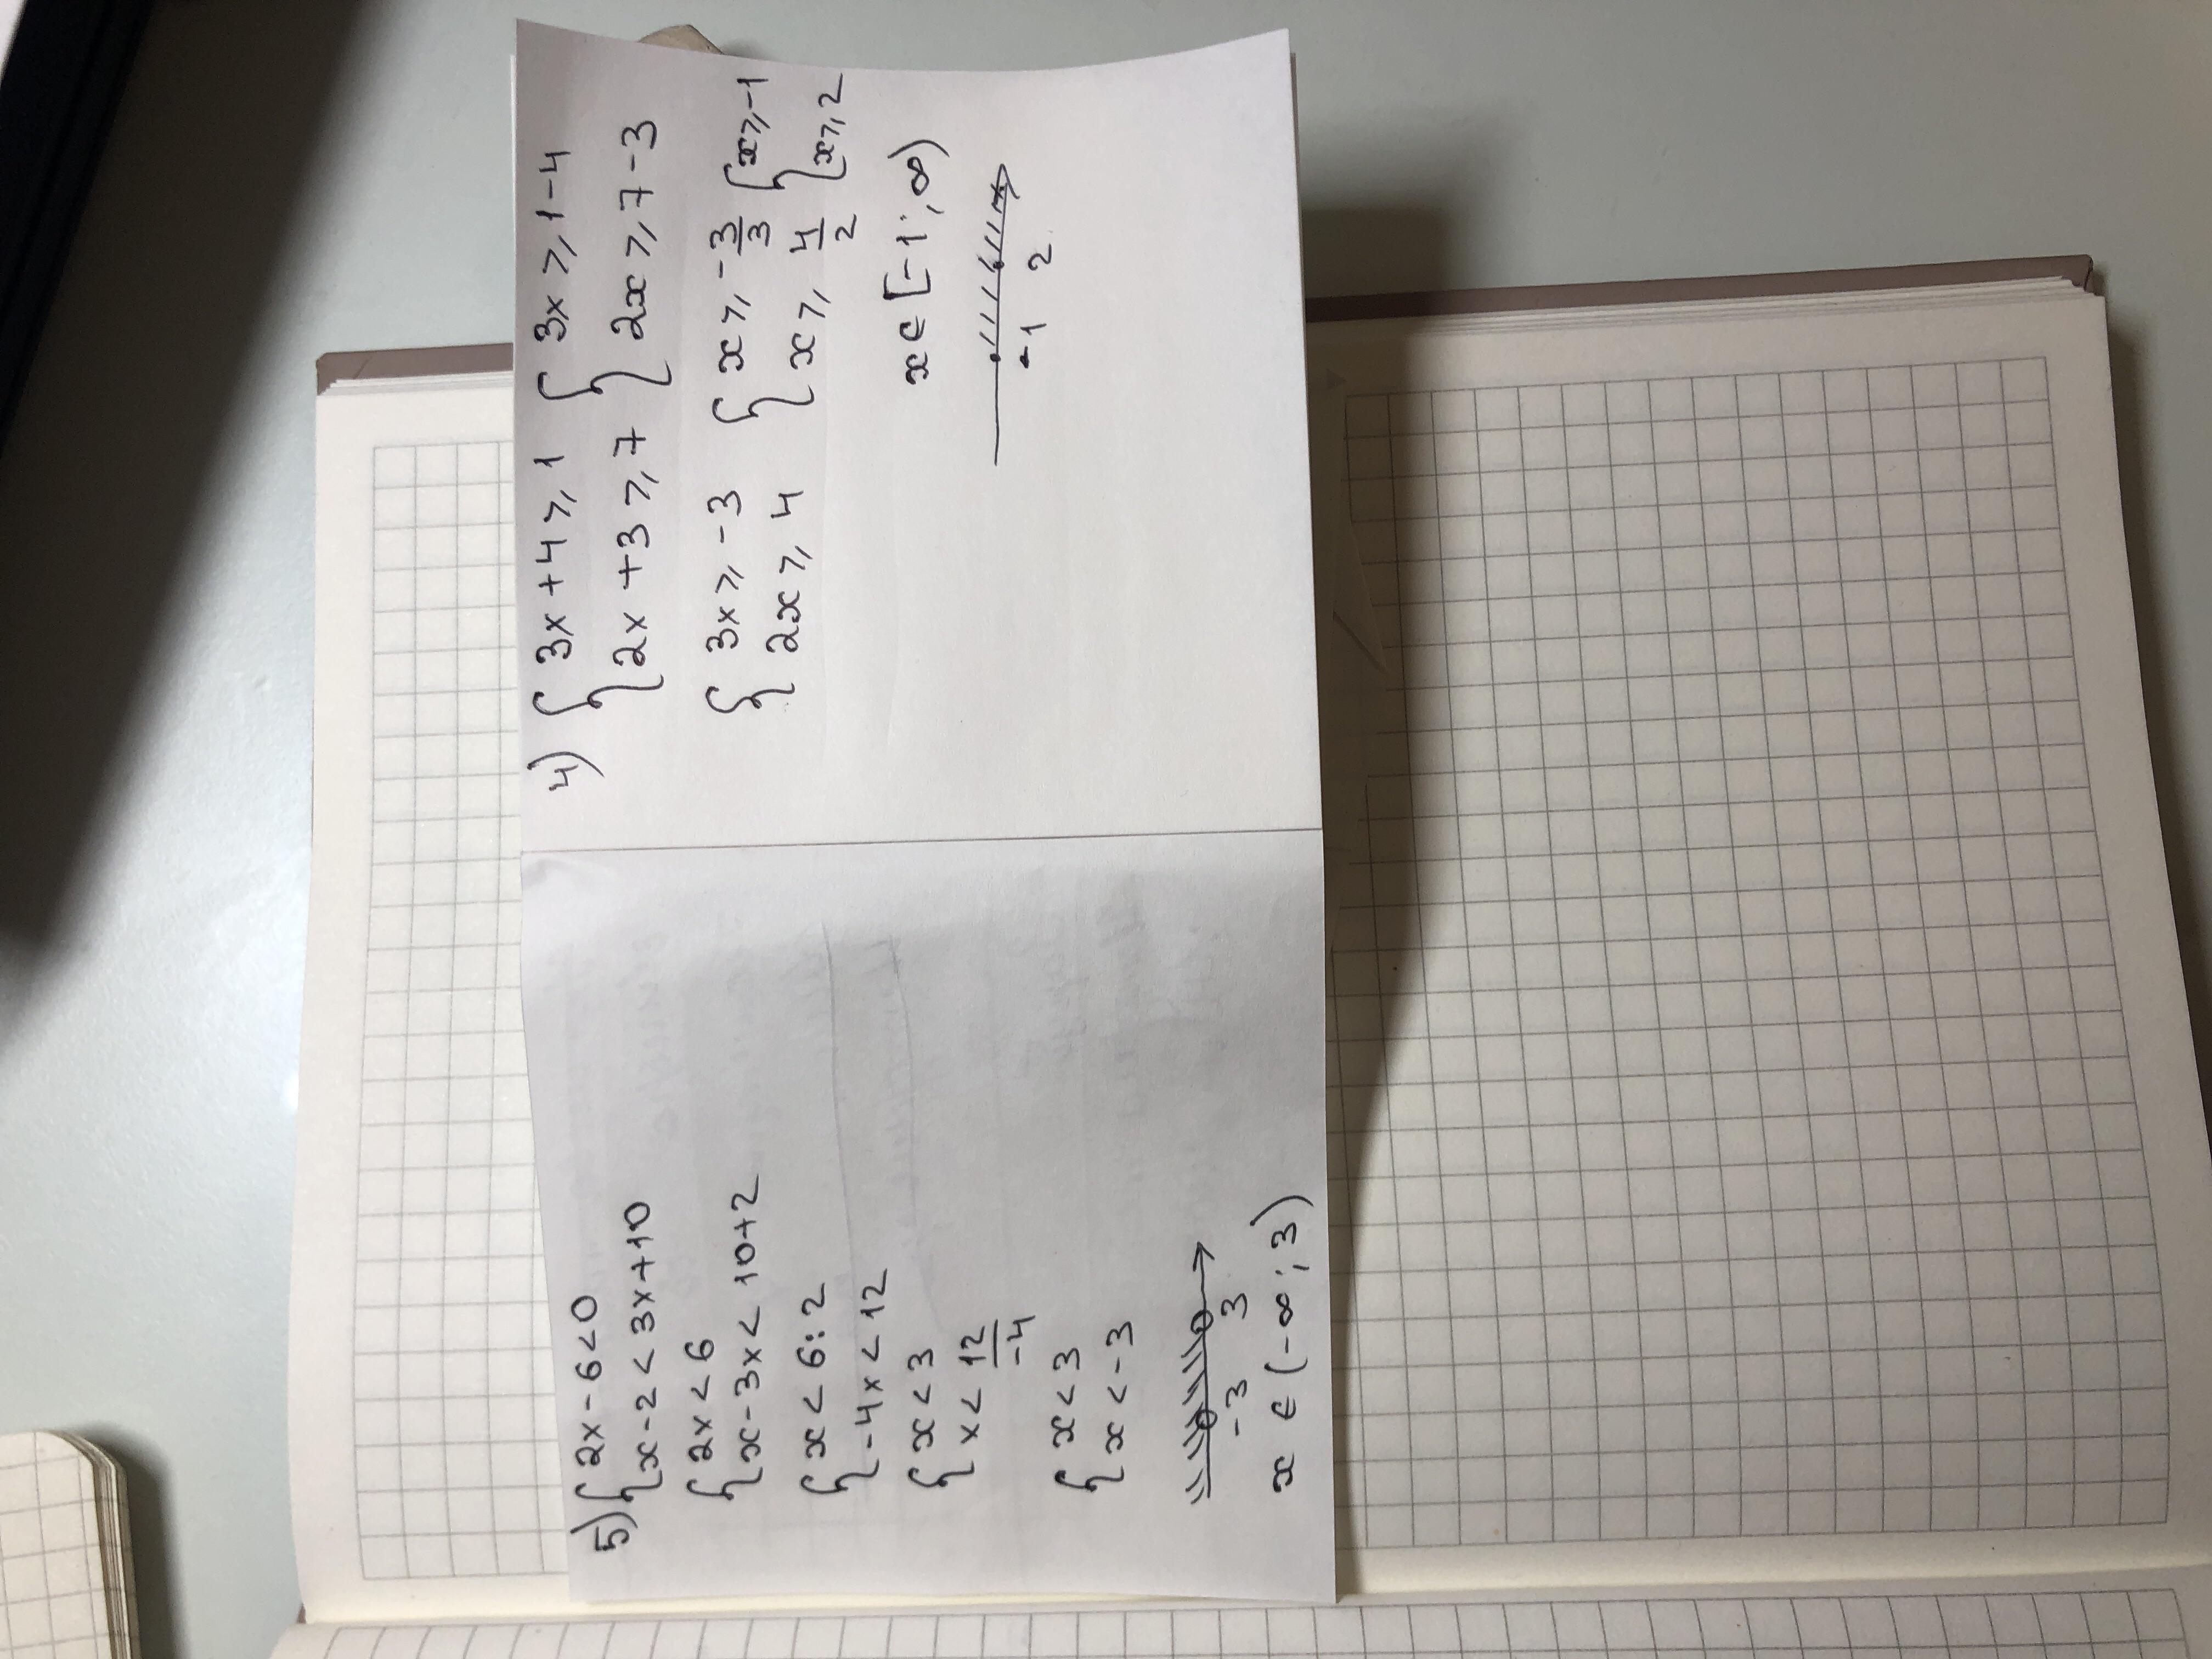 4) { 3x + 4 ⩾ 1 { 3x ⩾ 1-4
2x + 3 ⩾ 7 2x ⩾ 7-3
{ 3x ⩾ -3 { x ⩾ -3/3 { x ⩾ -1
2x ⩾ 4 x ⩾ 4/2 x ⩾ 2
x ∈ [-1; ∞)
-1 2
5) { 2x - 6 < 0
x - 2 < 3x + 10
{ 2x < 6
x - 3x < 10+2
{ x < 6:2
-4x < 12
{ x < 3
x < 12/-4
{ x < 3
x < -3
-3 3
x ∈ (-∞; 3)